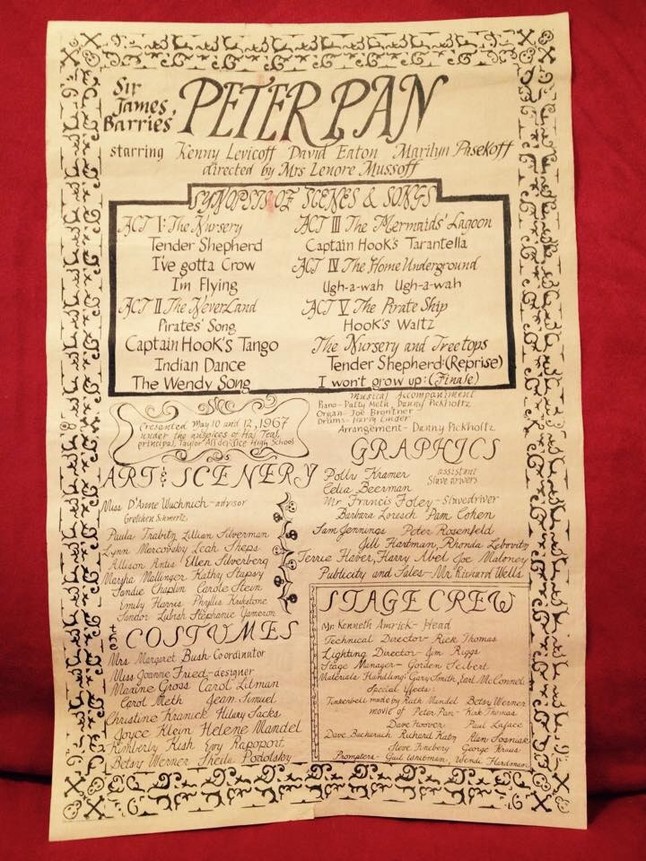 Sir
James
Barries'
PETER PAN
starring Kenny Levicoff David Eaton Marilyn Pasekoff
directed by Mrs Lenore Mussoff
SYNOPSIS OF SCENES & SONGS
ACT I: The Nursery
Tender Shepherd
I've gotta Crow
I'm Flying
ACT II The NeverLand
Pirates' Song
Captain Hook's Tango
Indian Dance
The Wendy Song
ACT III The Mermaids' Lagoon
Captain Hook's Tarantella
ACT IV The Home Underground
Ugh-a-wah Ugh-a-wah
ACT V The Pirate Ship
Hook's Waltz
The Nursery and Treetops
Tender Shepherd (Reprise)
I won't grow up: (Finale)
Presented May 10 and 12, 1967
under the auspices of
principal, Taylor Allderdice High School
Musical Accompaniment
Piano-Patty Danny Pickholtz
Organ- Joe
Drums-
Arrangement - Danny Pickholtz
ART & SCENERY
Miss D'Anne Wuchnich - advisor
Gretchen
Paula Lillian Silverman
Lynn Mercovsky Leah Sheps
Allison Ellen Silverberg
Marsha Mallinger Kathy
Sandie Chaplin Carole Stein
Emily Harris Phyllis
Sandor Stephanie
COSTUMES
Mrs Margaret Bush Coordinator
Miss Joanne Fried-designer
Maxine Gross Carol Litman
Carol Meth Jean Simuel
Christine Kranick Hilary Sacks
Joyce Klein Helene Mandel
Kimberly Kish Evy Rapoport
Betsy Werner Sheila Podolsky
GRAPHICS
Polly Kramer
Celia Beerman
assistant
Slave drivers
Mr Francis Foley-Slavedriver
Barbara Pam Cohen
Sam Jennings Peter Rosenfeld
Jill Hartman, Rhonda Lebovitz
Terrie Haver, Harry Abel Joe Maloney
Publicity and Sales-Mr. Richard Wells
STAGE CREW
Mr Kenneth Amrick - Head
Technical Director- Rick Thomas
Lighting Director- Jim Riggs
Stage Manager- Gordon Seibert
Materials Handling: Gary Smith, Earl McConnel
Special Effects:
Tinkerbell made by Ruth Mandel Betsy Werner
movie of Peter Pan- Kirk Thomas
Dave Hoover Paul Laface
Dave Richard Katz Alan
Steve Fineberg George Kraus
Prompters- Gail Wendi